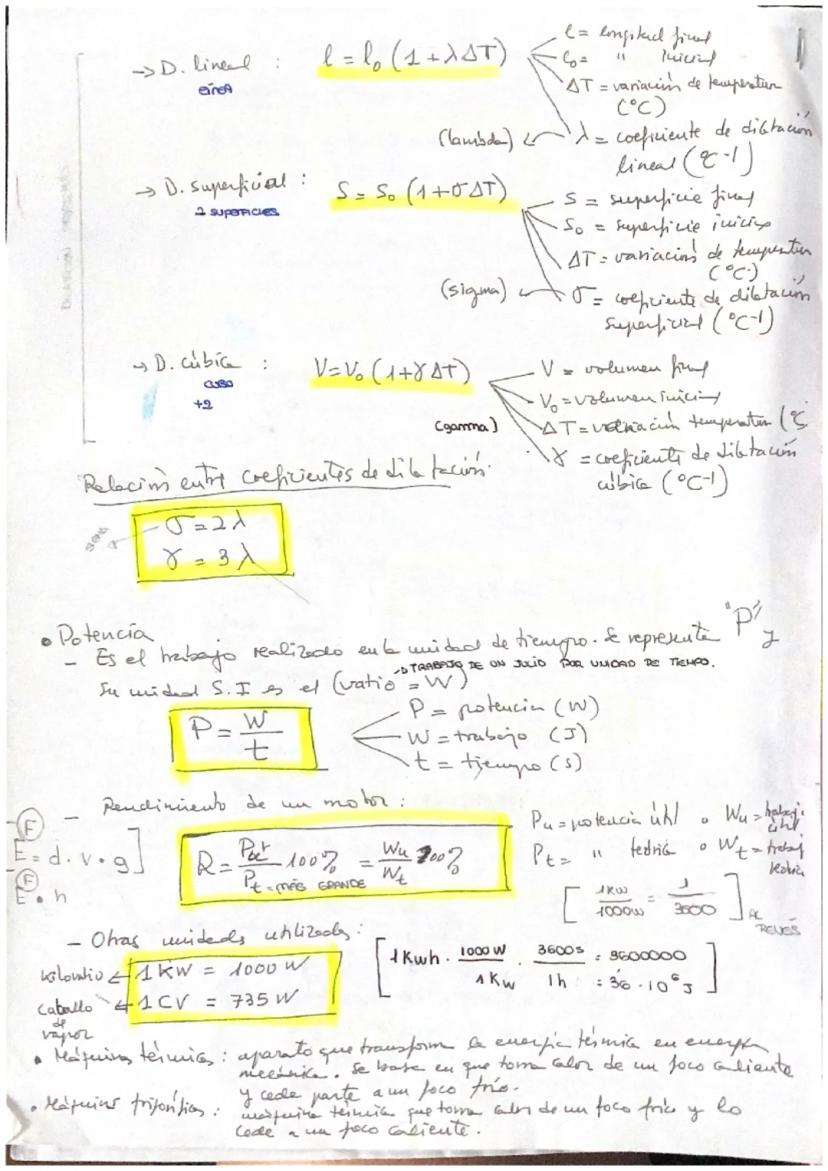 → D. lineal : l = l₀ (1 + λΔT)
línea
l = longitud final
l₀ = " inicial
ΔT = variación de temperatura (°C)
(lambda) ← λ = coeficiente de dilatación lineal (°C-1)
→ D. superficial : S = S₀ (1+σΔT)
2 SUPERFICIES
S = superficie final
S₀ = superficie inicial
ΔT = variación de temperatura (°C)
(sigma) ← σ = coeficiente de dilatación superficial (°C-1)
→ D. cúbica : V = V₀ (1+γΔT)
CUBO
+2
V = volumen final
V₀ = volumen inicial
ΔT = variación temperatura (°C
(gamma)
γ = coeficiente de dilatación cúbica (°C-1)
Relación entre coeficientes de dilatación.
σ = 2λ
γ = 3λ
• Potencia
- Es el trabajo realizado en la unidad de tiempo. Se representa "P" y
→ TRABAJO DE UN JULIO POR UNIDAD DE TIEMPO.
su unidad S.I es el (vatio = W)
P = W/t
P = potencia (W)
W = trabajo (J)
t = tiempo (s)
- Rendimiento de un motor :
(F)
E = d · v · g]
(F)
E · h
R = Pu/Pt 100% = Wu/Wt 100%
Pt = MÁS GRANDE
Pu = potencia útil o Wu = trabajo útil
Pt = " teórica o Wt = trabaj teórica
[1KW/1000W = 1/3600] AL REVÉS
- Otras unidades utilizadas :
kilovatio ← 1 KW = 1000 W
caballo de vapor ← 1 CV = 735 W
[1 Kwh · 1000 W/1 Kw · 3600s/1h = 3600000 = 3'6 · 10⁶ J]
• Máquinas térmicas : aparato que transforma la energía térmica en energía
mecánica. Se basa en que toma calor de un foco caliente
y cede parte a un foco frío.
• Máquinas frigoríficas : máquina térmica que toma calor de un foco frío y lo
cede a un foco caliente.